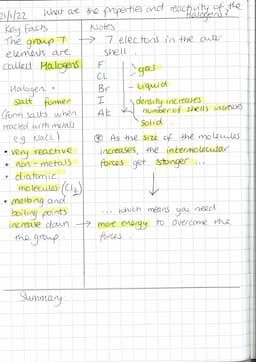 21/1/22 What are the properties and reactivity of the Halogens?
Key Facts
The group 7
elements are
called Halogens
Halogen =
salt former
(form salts when
reacted with metals
e.g NaCl)
• very reactive
• non-metals
• diatomic
molecules (Cl2)
• melting and
boiling points
increase down
the group
Notes
→ 7 electons in the outer
shell.
F
Cl
Br
I
At
gas
Liquid
density increases
number of shells increases
Solid
As the size of the molecules
increases, the intermolecular
forces get stonger ...
... which means you need
more energy to overcome the
forces
Summary